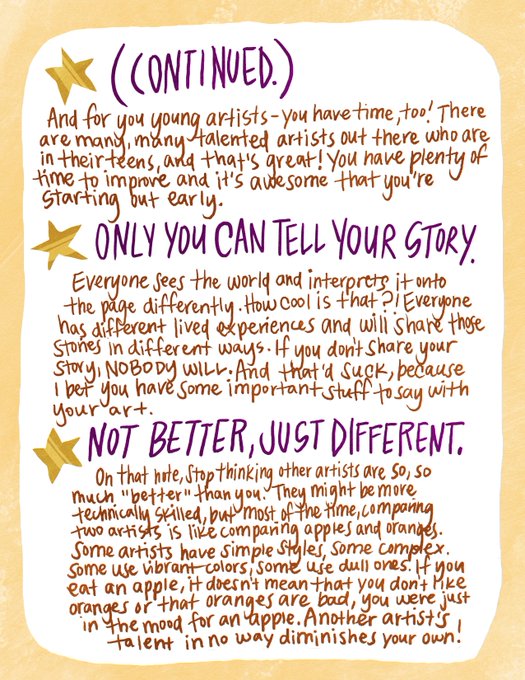 (CONTINUED.)
And for you young artists - you have time, too! There
are many, many talented artists out there who are
in their teens, and that's great! You have plenty of
time to improve and it's awesome that you're
starting out early.
ONLY YOU CAN TELL YOUR STORY.
Everyone sees the world and interprets it onto
the page differently. How cool is that?! Everyone
has different lived experiences and will share those
stories in different ways. If you don't share your
story, NOBODY WILL. And that'd suck, because
I bet you have some important stuff to say with
your art.
NOT BETTER, JUST DIFFERENT.
On that note, stop thinking other artists are so, so
much "better" than you. They might be more
technically skilled, but most of the time, comparing
two artists is like comparing apples and oranges.
Some artists have simple styles, some complex.
Some use vibrant colors, some use dull ones. If you
eat an apple, it doesn't mean that you don't like
oranges or that oranges are bad, you were just
in the mood for an apple. Another artist's
talent in no way diminishes your own!